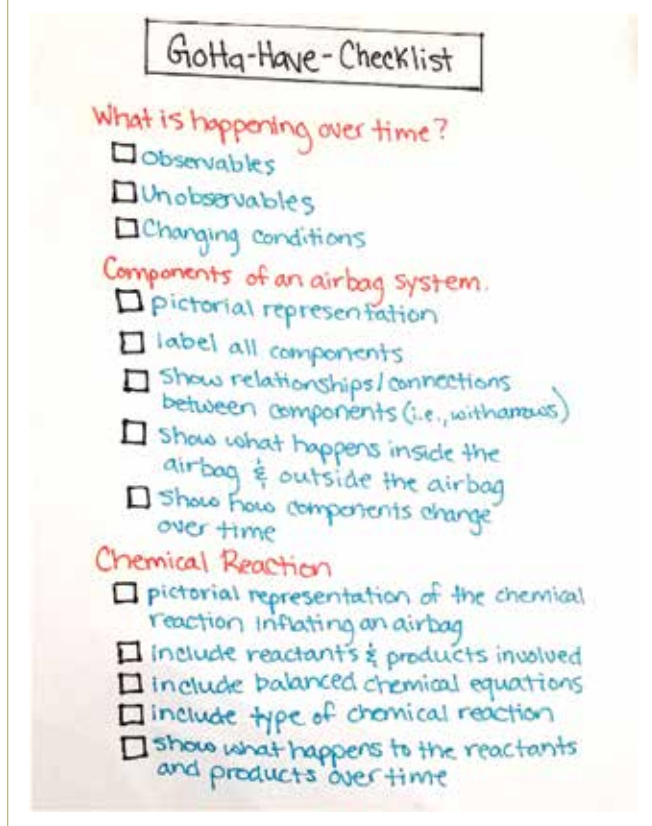 Gotta-Have-Checklist
What is happening over time?
Observables
Unobservables
Changing conditions
Components of an airbag system.
pictorial representation
label all components
Show relationships/connections
between components (i.e., with arrows)
Show what happens inside the
airbag & outside the airbag
Show how components change
over time
Chemical Reaction
pictorial representation of the chemical
reaction inflating an airbag
include reactants & products involved
include balanced chemical equations
include type of chemical reaction
show what happens to the reactants
and products over time